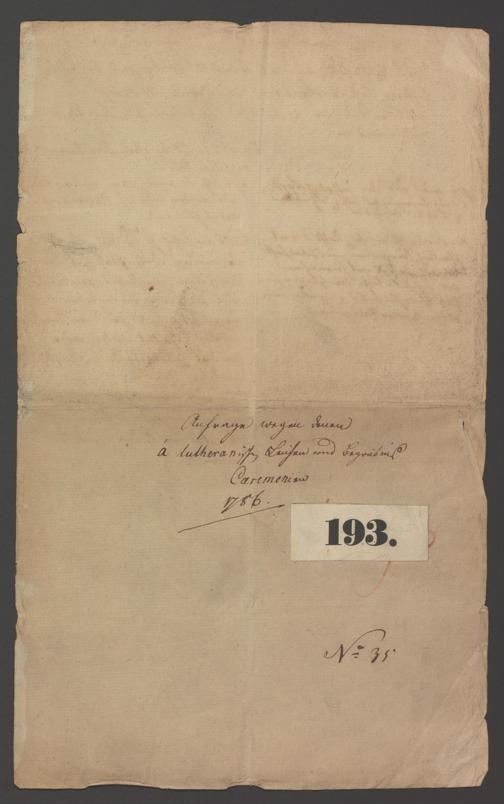 Anfrage wegen denen
á lutheranischen Leichen und Begräbniß
Caeremonien
1786.
193.
No 35